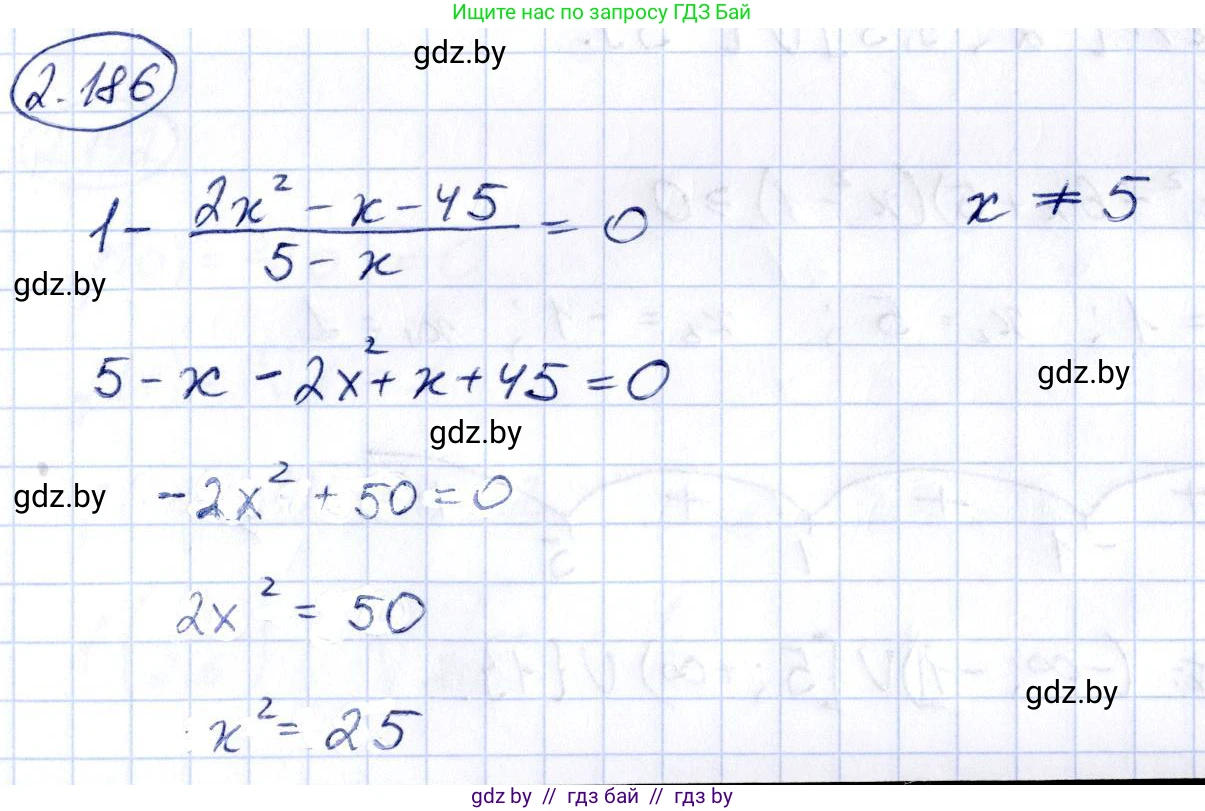 Ищите нас по запросу ГДЗ Бай
gdz.by
2.186
1 - \frac{2x² - x - 45}{5 - x} = 0    x ≠ 5
gdz.by
5 - x - 2x² + x + 45 = 0
gdz.by
gdz.by
gdz.by
-2x² + 50 = 0
2x² = 50
gdz.by
x² = 25
gdz.by // гдз бай // гдз by